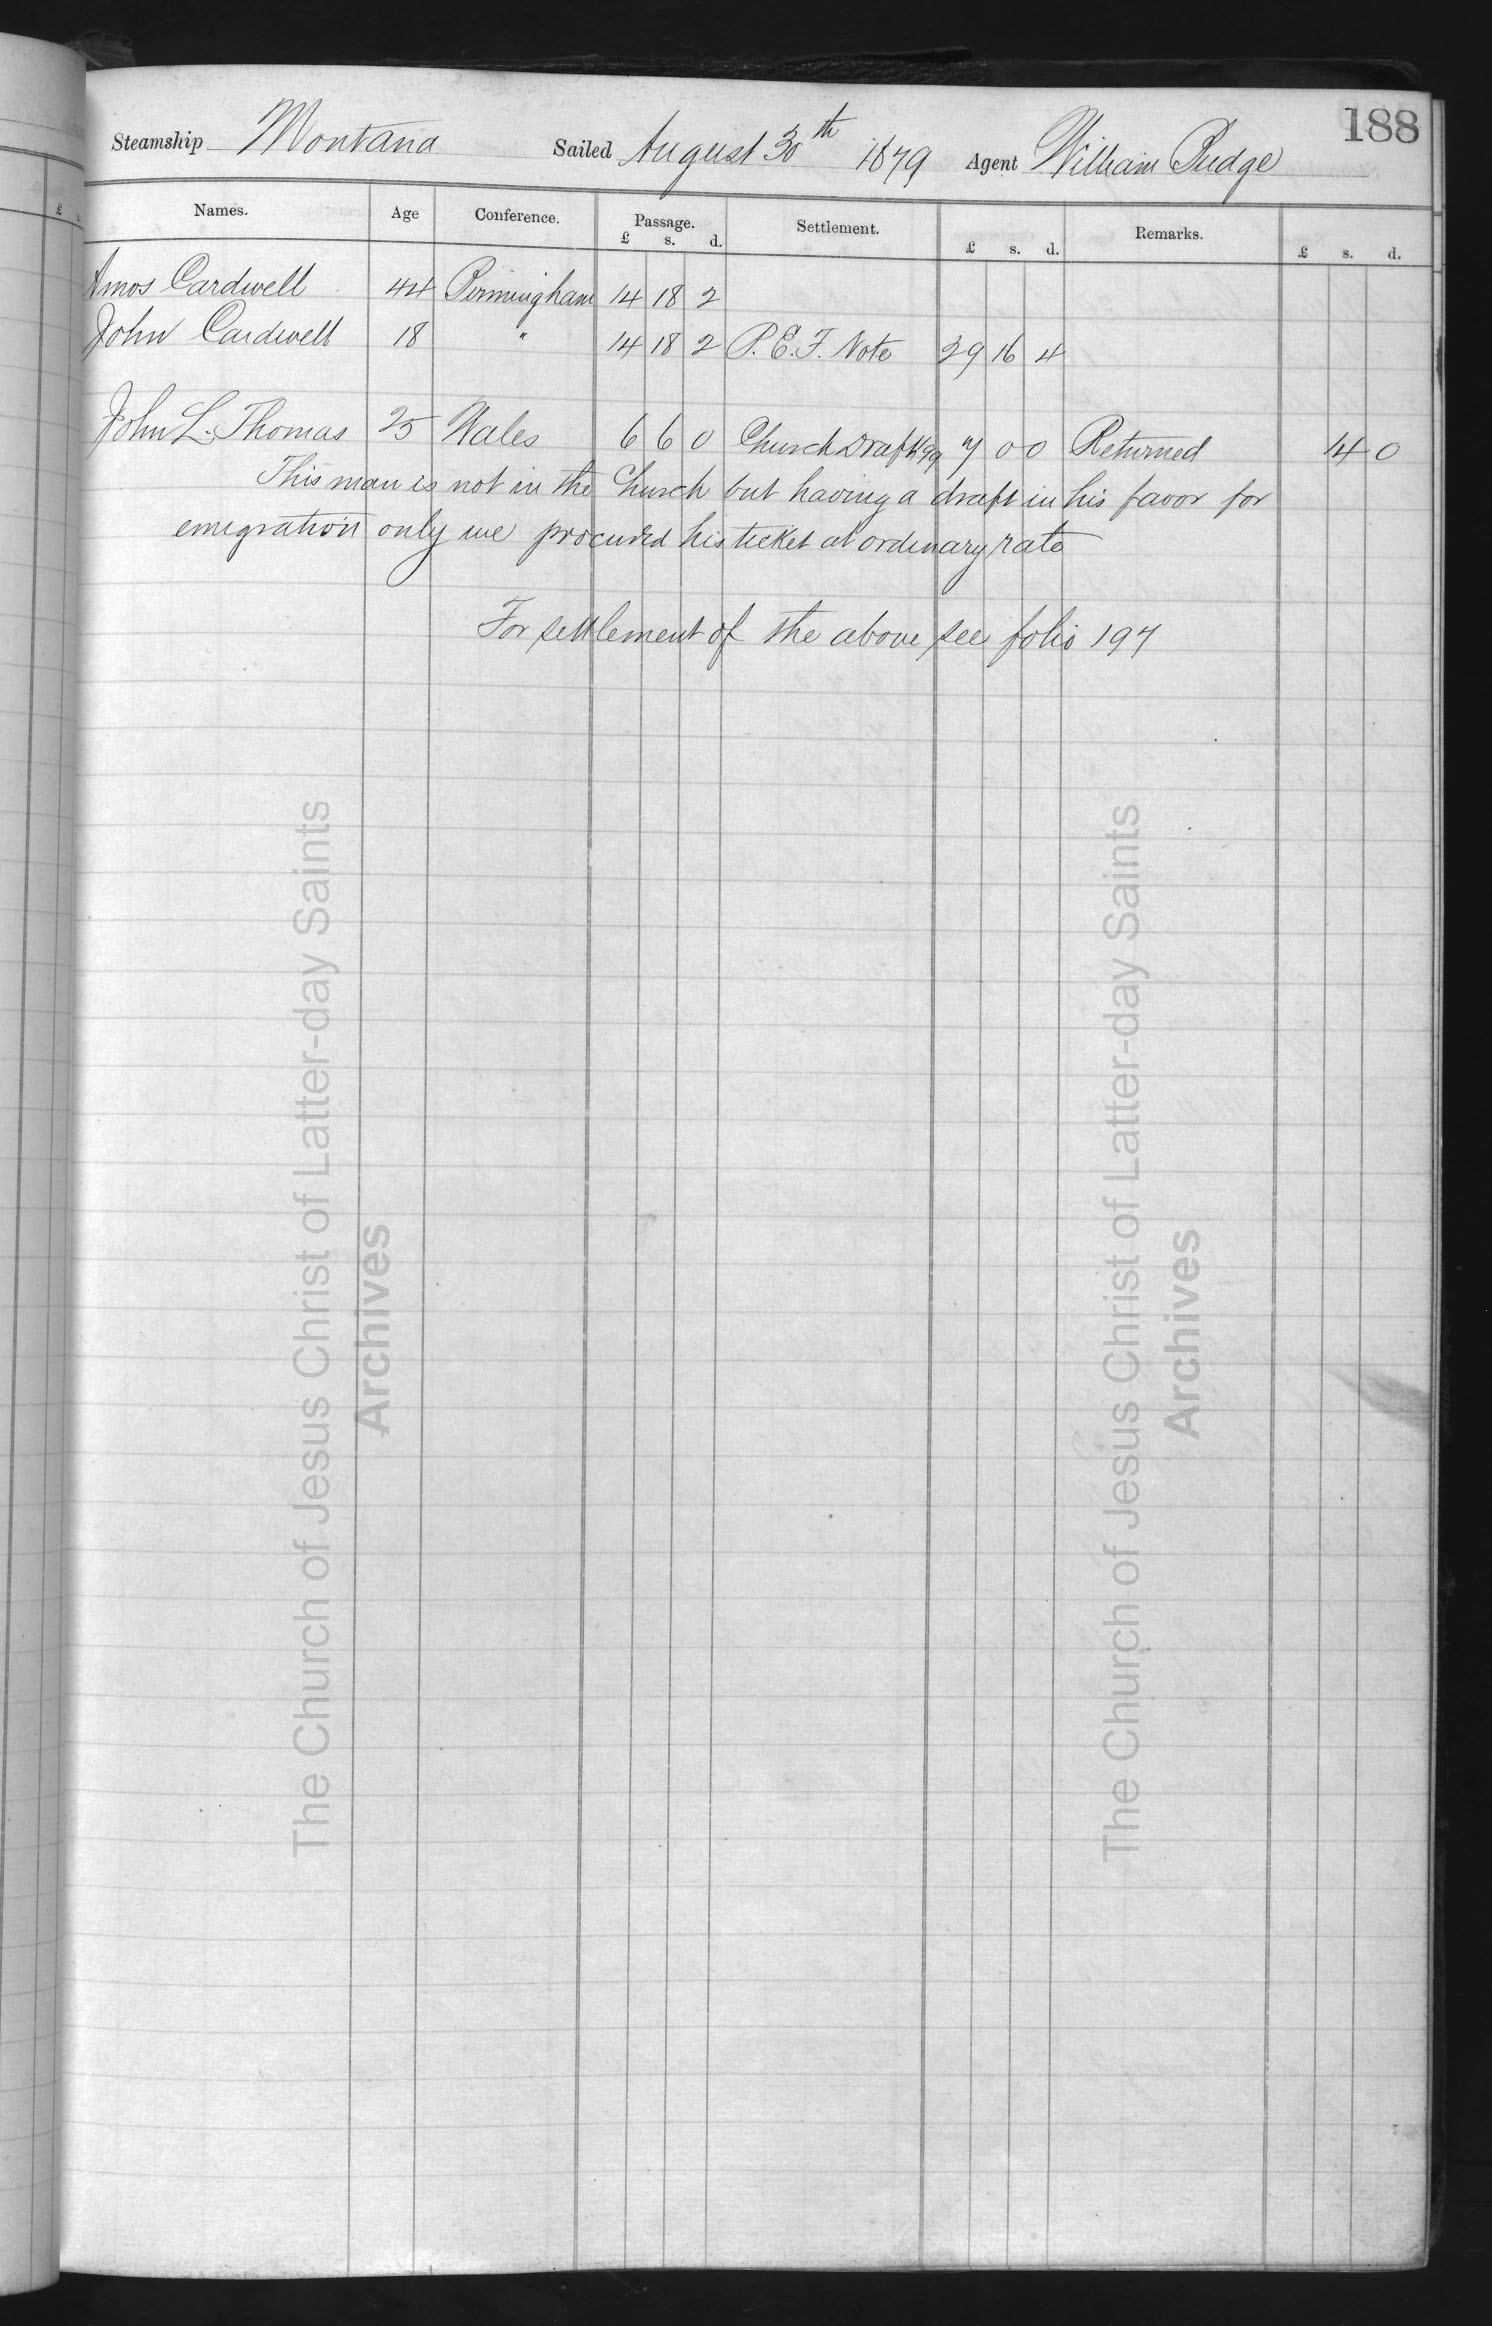 188
Steamship Montana Sailed August 30th 1879 Agent William Budge
Names. Age Conference. Passage. Settlement. Remarks.
£ s. d. £ s. d. £ s. d.
Amos Cardwell 44 Birmingham 14 18 2
John Cardwell 18 " 14 18 2 P.E.F. Note 29 16 4
John L. Thomas 25 Wales 6 6 0 Church Draft 7 0 0 Returned 14 0
This man is not in the Church but having a draft in his favor for
emigration only we procured his ticket at ordinary rate
For settlement of the above see folio 197
The Church of Jesus Christ of Latter-day Saints
Archives
The Church of Jesus Christ of Latter-day Saints
Archives